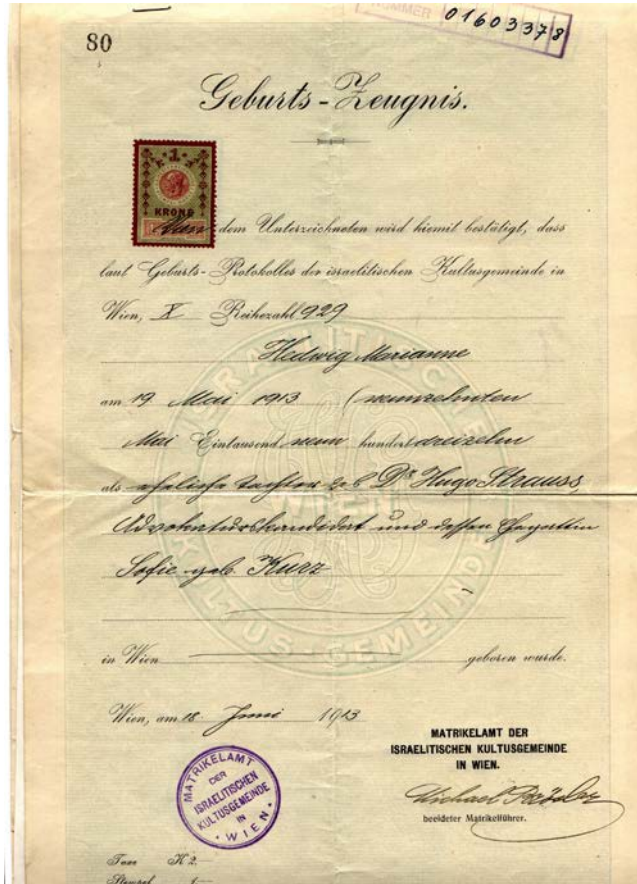 80
NUMMER 01603378
Geburts-Zeugnis.
1
KRONE
Von dem Unterzeichneten wird hiemit bestätigt, dass
laut Geburts-Protokolles der israelitischen Kultusgemeinde in
Wien, X Reihezahl 929
Hedwig Marianne
am 19 Mai 1913 (neunzehnten
Mai Eintausend neun hundert dreizehn
als eheliche Tochter des Dr Hugo Strauss,
Advokaturskandidat und dessen Ehegattin
Sofie geb. Kurz
in Wien geboren wurde.
Wien, am 18. Juni 1913
MATRIKELAMT DER
ISRAELITISCHEN KULTUSGEMEINDE
IN WIEN.
Michael
beeideter Matrikelführer.
MATRIKELAMT
DER
ISRAELITISCHEN
KULTUSGEMEINDE
IN
WIEN
ISRAELITISCHE
WIEN
KULTUS-GEMEINDE
Taxe K 2.
Stempel 1.—